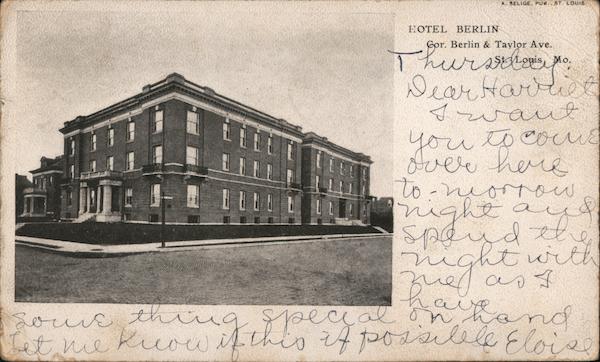 A. SELIGE, PUB., ST. LOUIS
HOTEL BERLIN
Cor. Berlin & Taylor Ave.
St. Louis, Mo.
Thursday.
Dear Harriet
I want
you to come
over here
to-morrow
night and
spend the
night with
me as I
have
some thing special on hand
Let me know if this if possible Eloise